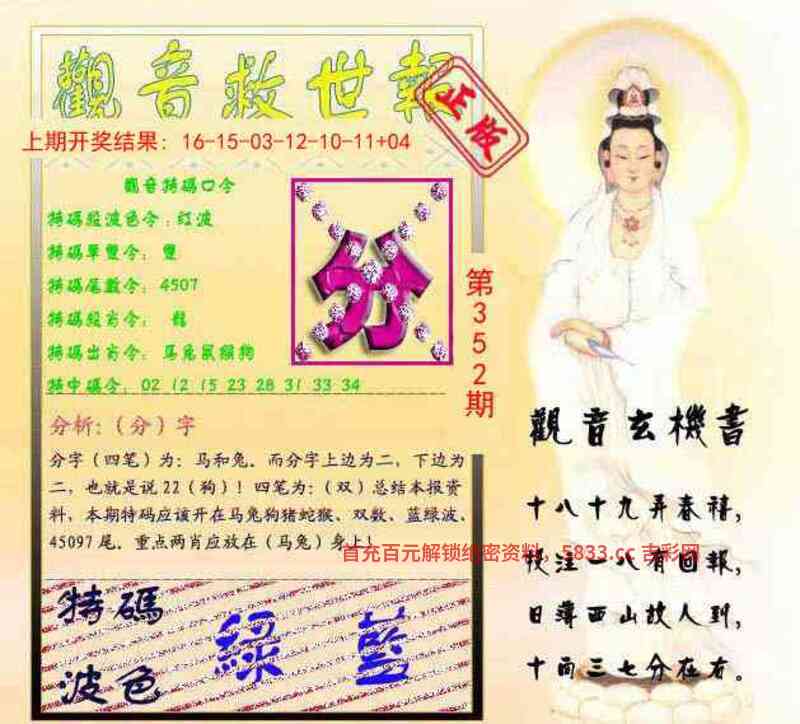 觀音救世報
正版
上期开奖结果：16-15-03-12-10-11+04
觀音特碼口令
特碼短波色令：红波
特碼單雙令：雙
特碼尾數令：4507
特碼殺肖令：
特碼出肖令：马兔鼠猴狗
特中碼令：02 12 15 23 28 31 33 34
分
第352期
分析：（分）字
分字（四笔）为：马和兔．而分字上边为二，下边为
二，也就是说22（狗）！四笔为：（双）总结本报资
料，本期特码应该开在马兔狗猪蛇猴、双数、蓝绿波、
45097尾．重点两肖应放在（马兔）身上！
首充百元解锁绝密资料，5833.cc 吉彩网
特碼
波色
綠 藍
觀音玄機書
十八十九弄春禧，
投注一八有回報，
日薄西山故人到，
十面三七分在右。